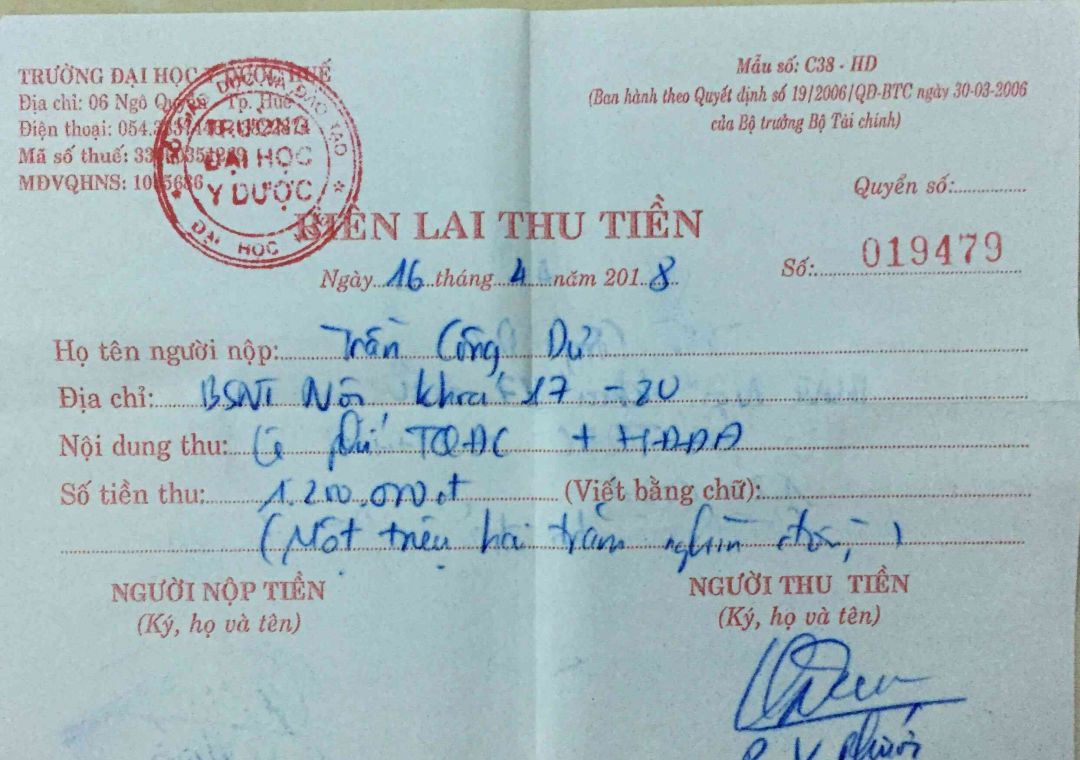 TRƯỜNG ĐẠI HỌC Y DƯỢC HUẾ
Địa chỉ: 06 Ngô Quyền Tp. Huế
Điện thoại:
Mã số thuế:
MĐVQHNS:
TRƯỜNG
ĐẠI HỌC
Y DƯỢC
BỘ GIÁO DỤC VÀ ĐÀO TẠO
ĐẠI HỌC HUẾ
Mẫu số: C38 - HD
(Ban hành theo Quyết định số 19/2006/QĐ-BTC ngày 30-03-2006
của Bộ trưởng Bộ Tài chính)
Quyển số:
BIÊN LAI THU TIỀN
Số: 019479
Ngày 16 tháng 4 năm 2018
Họ tên người nộp: Trần Công Dự
Địa chỉ: BSNT Nội khoá 17 - 20
Nội dung thu: Lệ phí TQĐC + HĐĐA
Số tiền thu: 1.200.000đ (Viết bằng chữ):
(Một triệu hai trăm nghìn đồng)
NGƯỜI NỘP TIỀN
(Ký, họ và tên)
NGƯỜI THU TIỀN
(Ký, họ và tên)